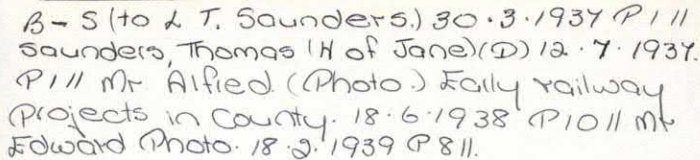 B-S (to L T. Saunders.) 30.3.1937 P1 //
Saunders, Thomas (H of Jane)(D) 12.7.1937.
P1 // Mr Alfied (Photo.) Eally railway
Projects in County. 18.6.1938 P10 // Mr
Edward Photo. 18.2.1939 P8 //.